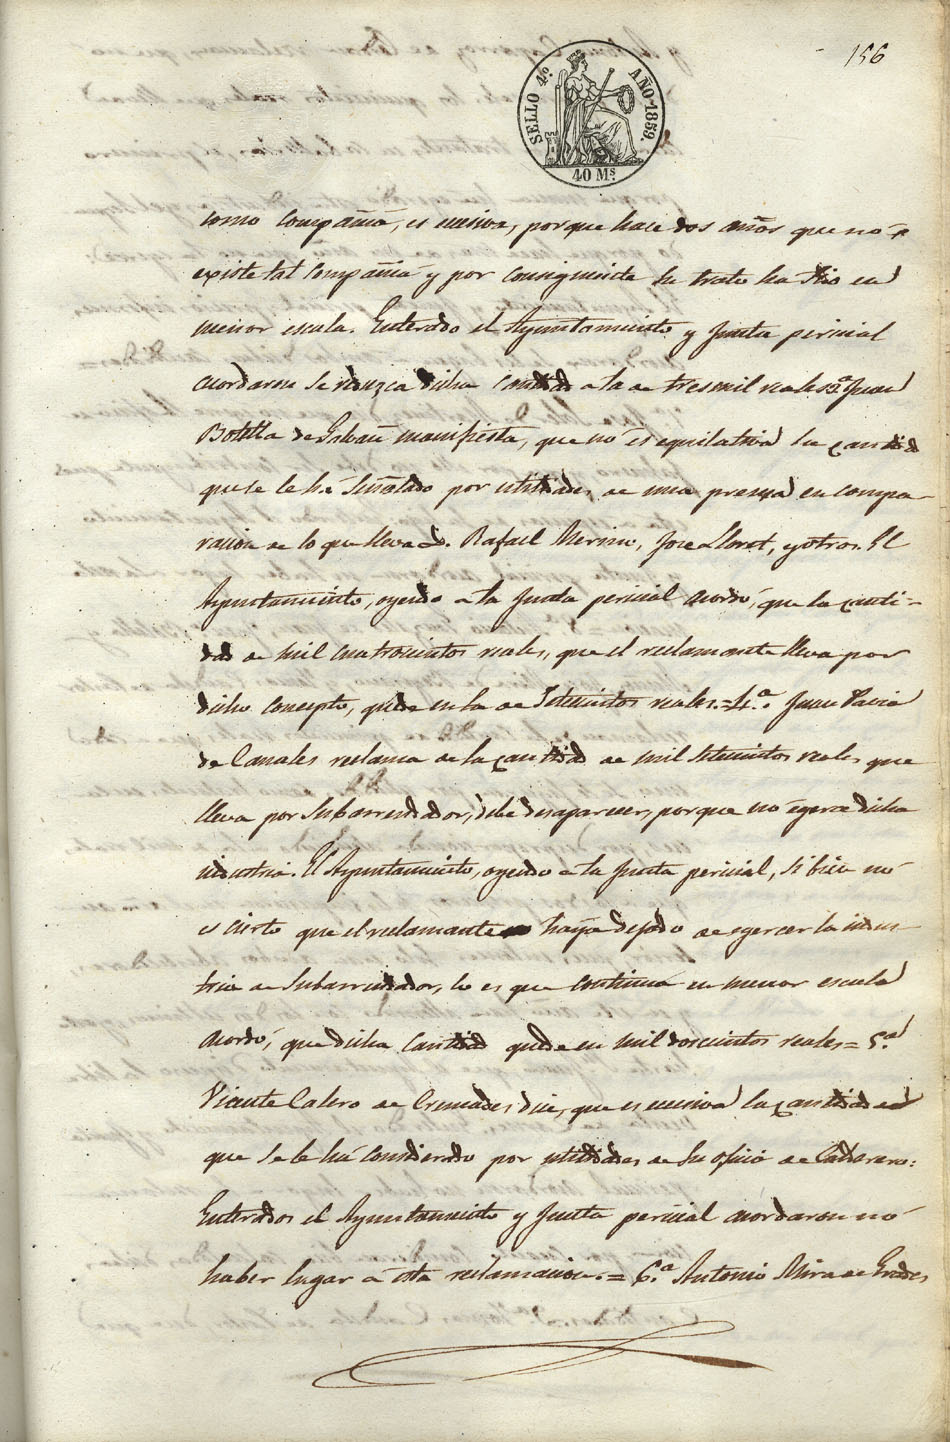 156
SELLO 4º. AÑO 1859.
40 Ms.
como compañia, es ecsesiva, porque hace dos años que nó
existe tal compañia y por consiguiente su trato ha sido en
menor escala. Enterado el Ayuntamiento y Junta pericial
acordaron se reduzca dicha cantidad a la de tres mil reales=3.ª Juan
Botella de Galvañ manifiesta, que nó es equitativa la cantidad
que se le há señalado por utilidades de una prensa en compa-
racion de lo que lleva D. Rafael Merino, Jose Lloret, y otros. El
Ayuntamiento, oyendo a la Junta pericial acordó, que la canti=
dad de mil cuatrocientos reales, que el reclamante lleva por
dicho concepto, quede en la de setecientos reales.=4.ª Juan Pavia
de Canales reclama de la cantidad de mil setecientos reales que
lleva por subarrendador, debe desaparecer, porque nó egerce dicha
industria. El Ayuntamiento, oyendo a la Junta pericial, si bien nó
es cierto que el reclamante haya dejado de egercer la indus-
tria de subarrendador, lo es que continua en menor escala
acordó, que dicha cantidad quede en mil doscientos reales=5.ª
Vicente Calero de Cremades dice, que es ecsesiva la cantidad
que se le há considerado por utilidades de su oficio de Calderero:
Enterados el Ayuntamiento y Junta pericial acordaron nó
haber lugar a esta reclamacion.=6.ª Antonio Mira de